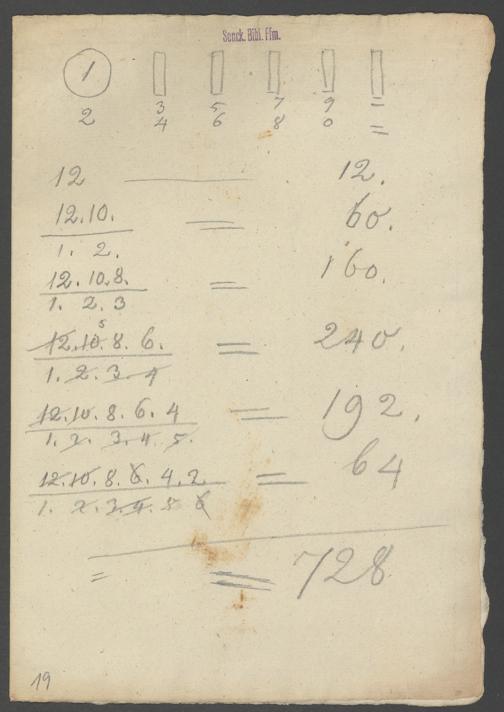 Senck. Bibl. Ffm.
1
3 5 7 9 =
2 4 6 8 0 =
12 — 12.
12.10. = 60.
1. 2.
12.10.8. = 160.
1. 2. 3
5
12.10.8.6. = 240.
1.2.3.4
12.10.8.6.4 = 192.
1.2.3.4.5.
12.10.8.6.4.2 = 64
1.2.3.4.5 6
= = 728
19